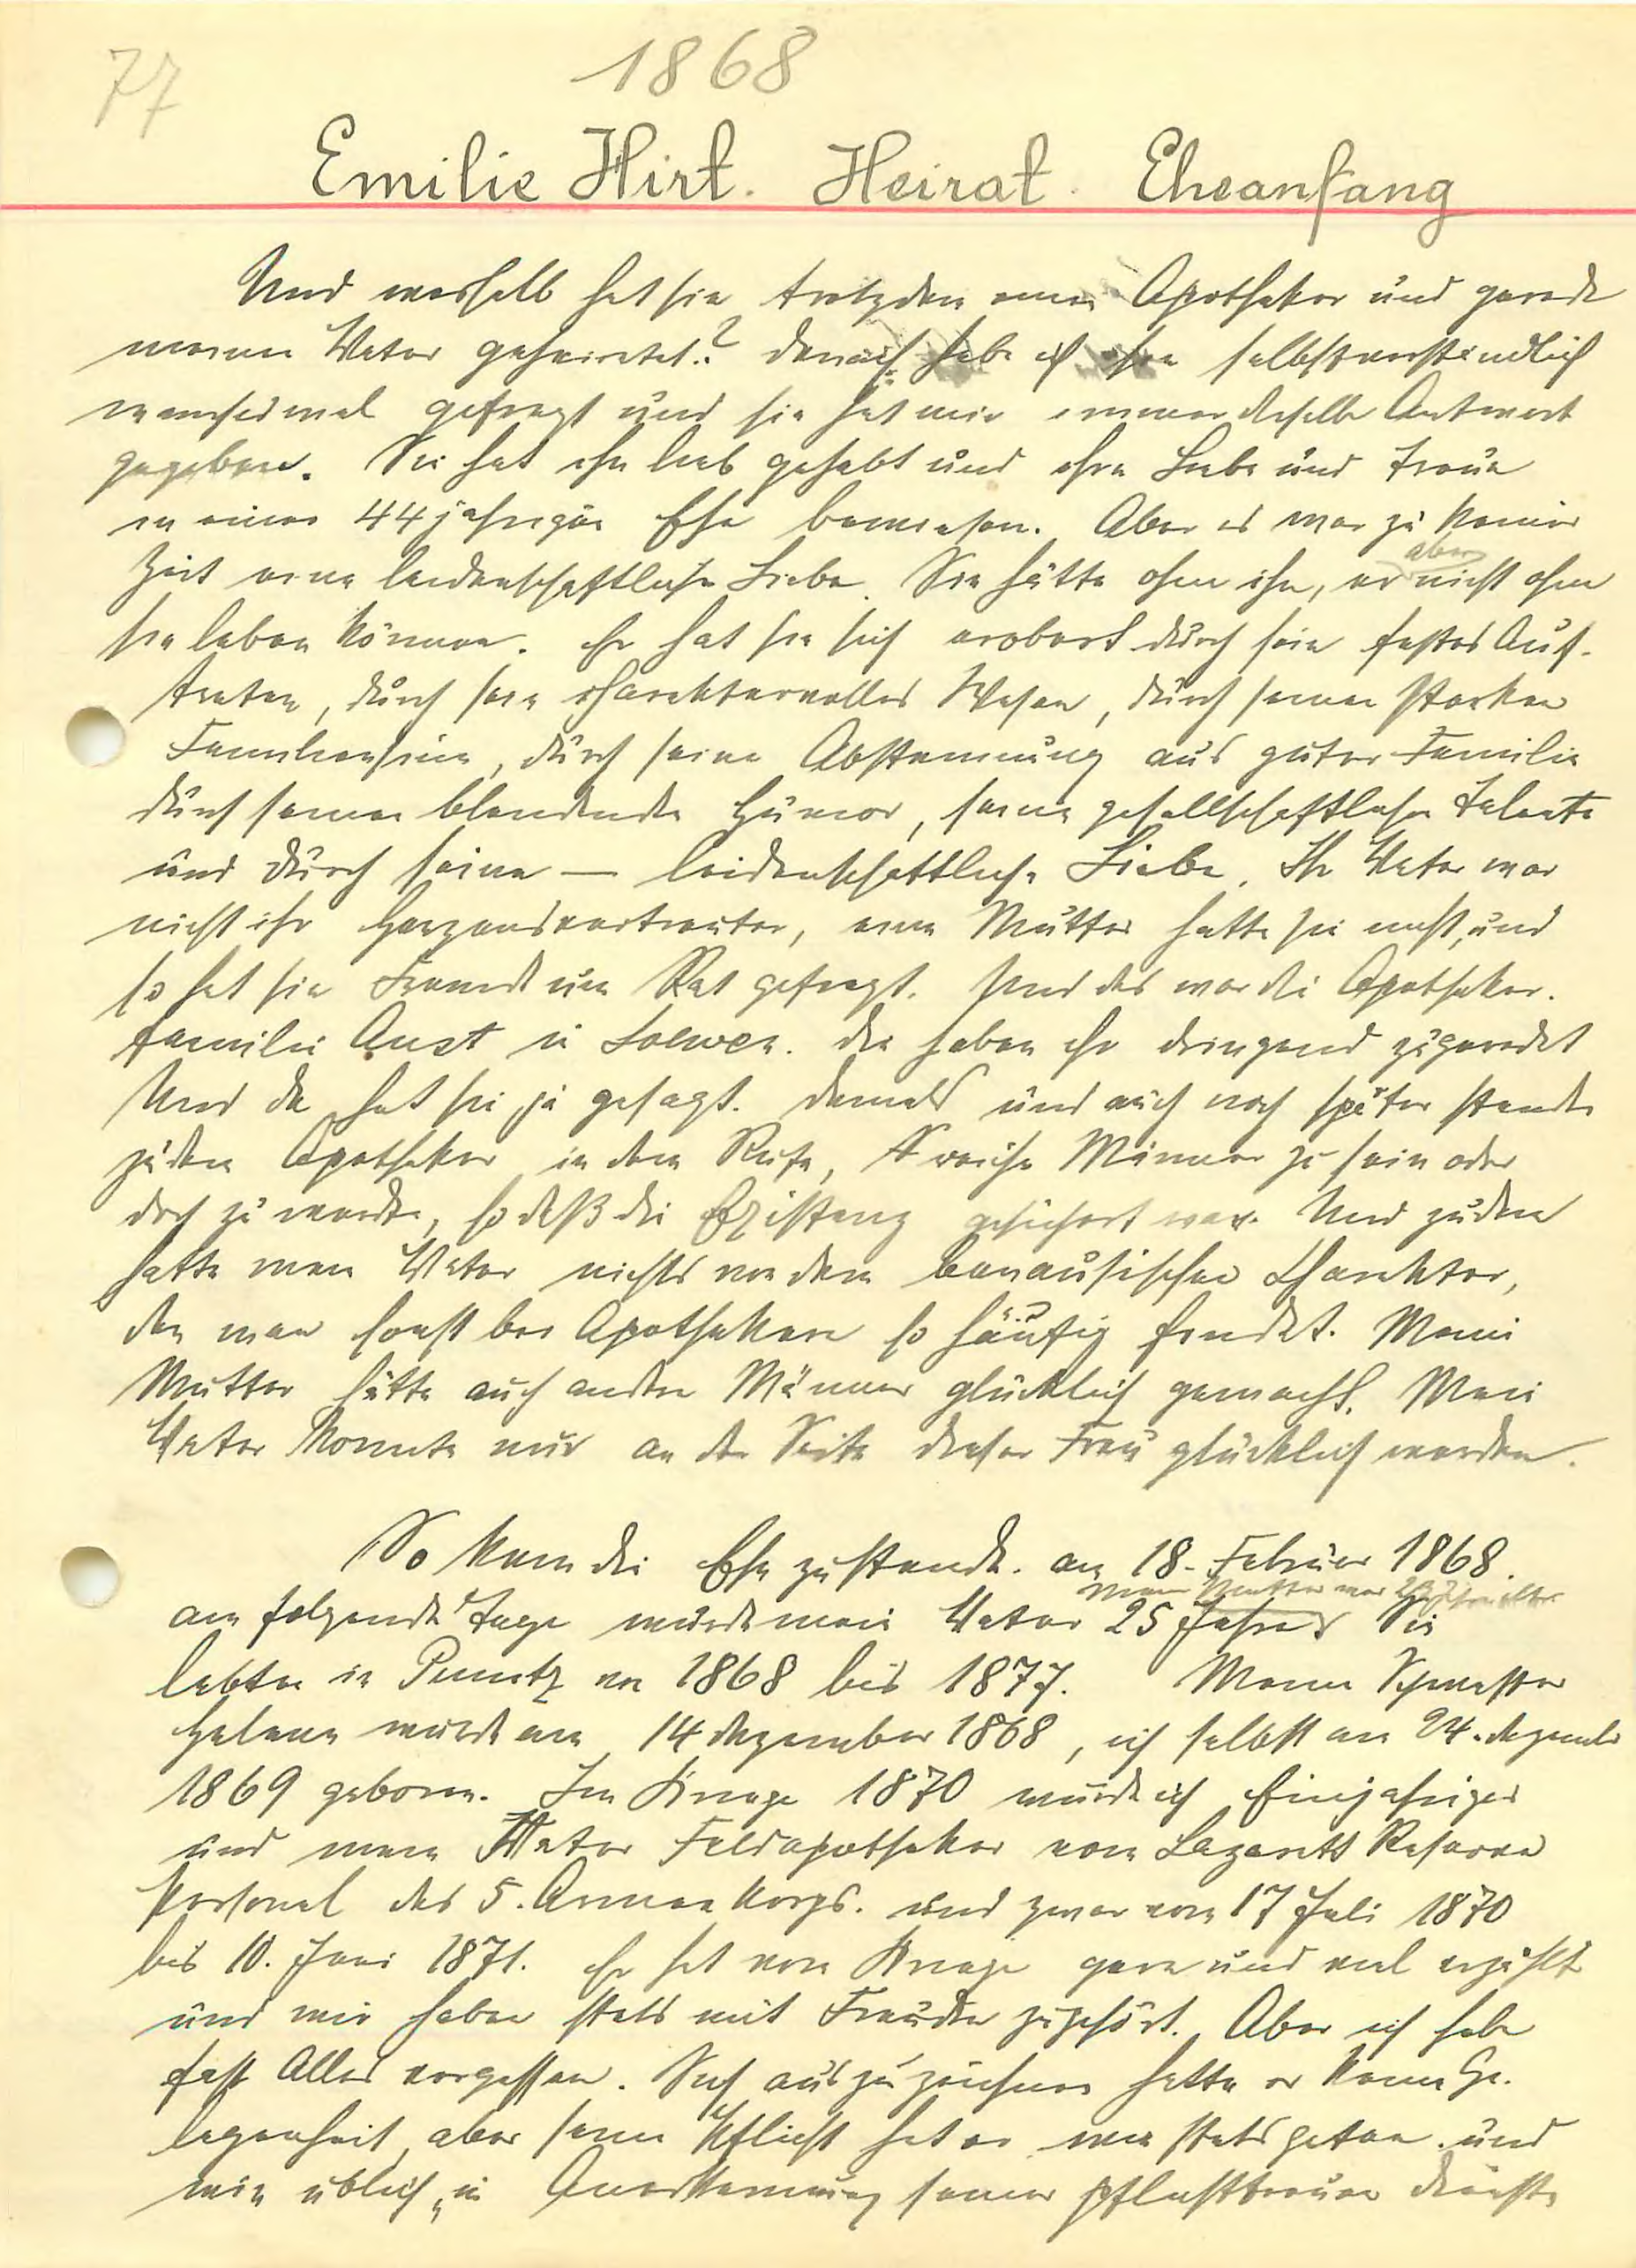 77
1868
Emilie Hirt. Heirat. Eheanfang
Und weshalb hat sie trotzdem einen Apotheker und gerade
meinen Vater geheiratet? Danach habe ich sie selbstverständlich
manchmal gefragt und sie hat mir immer dieselbe Antwort
gegeben. Sie hat ihn lieb gehabt und ihre Liebe und Treue
in einer 44 jährigen Ehe bewiesen. Aber es war zu keiner
Zeit eine leidenschaftliche Liebe. Sie hätte ohne ihn, er aber nicht ohne
sie leben können. Er hat sie sich erobert durch sein festes Auf-
treten, durch sein charaktervolles Wesen, durch seinen starken
Familiensinn, durch seine Abstammung aus guter Familie
durch seinen blendenden Humor, seine gesellschaftlichen Talente
und durch seine — leidenschaftliche Liebe. Ihr Vater war
nicht ihr Herzensvertrauter, eine Mutter hatte sie nicht, und
so hat sie Freunde um Rat gefragt. Und das war die Apotheker-
familie Aust in Loewen. Die haben ihr dringend zugeredet
Und da hat sie ja gesagt. Damals und auch noch später standen
zudem Apotheker in dem Rufe, reiche Männer zu sein oder
doch zu werden, so daß die Existenz gesichert war. Und zudem
hatte mein Vater nichts von dem banausischen Charakter,
den man sonst bei Apothekern so häufig findet. Meine
Mutter hätte auch andere Männer glücklich gemacht. Mein
Vater konnte nur an der Seite dieser Frau glücklich werden.
So kam die Ehe zustande. am 18. Februar 1868.
Meine Mutter war
am folgenden Tage wurde mein Vater 25 Jahre. Sie
lebten in Punitz von 1868 bis 1877. Meine Schwester
Helene wurde am 14 Dezember 1868, ich selbst am 24. Dezember
1869 geboren. Im Kriege 1870 wurde ich Einjähriger
und mein Vater Feldapotheker vom Lazarett Reserve
Personal des 5. Armeekorps. und zwar vom 17 Juli 1870
bis 10. Juni 1871. Er hat vom Kriege gern und viel erzählt
und wir haben stets mit Freuden zugehört. Aber ich habe
fast Alles vergessen. Sich auszuzeichnen hatte er keine Ge-
legenheit, aber seine Pflicht hat er wie stets getan. und
wie üblich „in Anerkennung seiner pflichttreuen Dienste